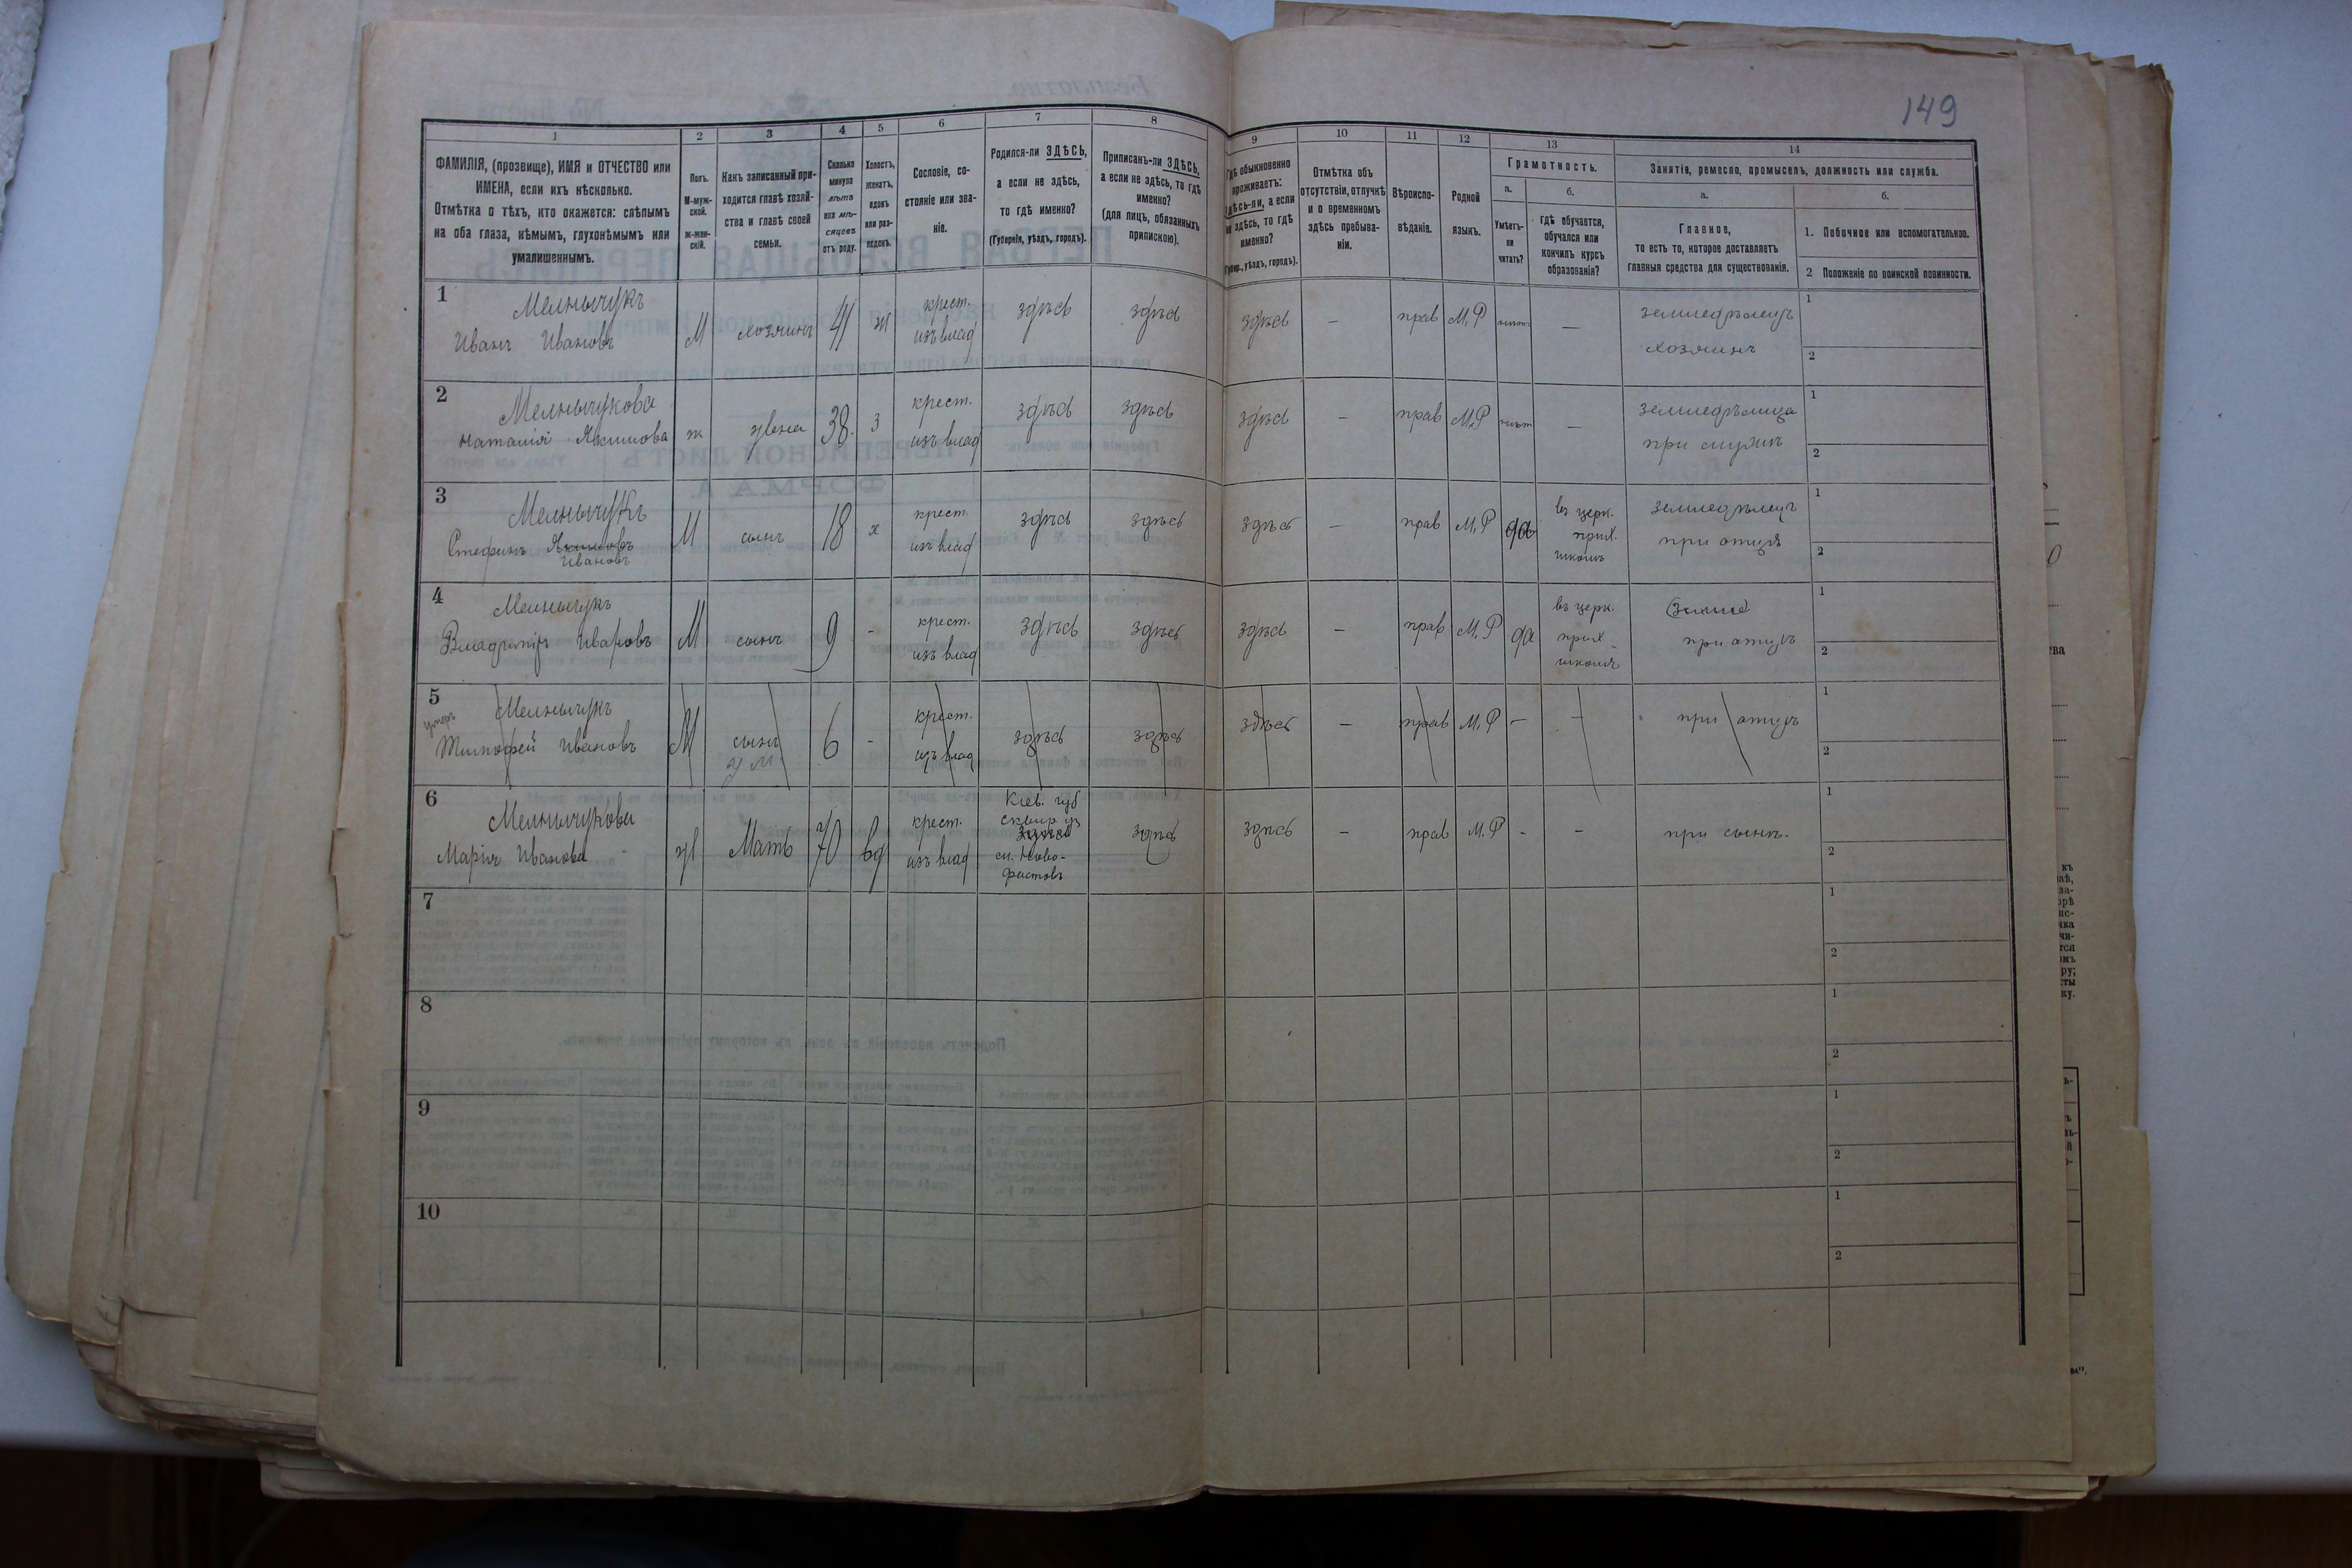 149
1 2 3 4 5 6 7 8 9 10 11 12 13 14
ФАМИЛІЯ, (прозвище), ИМЯ и ОТЧЕСТВО или
ИМЕНА, если ихъ нѣсколько.
Отмѣтка о тѣхъ, кто окажется: слѣпымъ
на оба глаза, нѣмымъ, глухонѣмымъ или
умалишеннымъ.
Полъ.
М-муж-
ской.
ж-жен-
скій.
Какъ записанный при-
ходится главѣ хозяй-
ства и главѣ своей
семьи.
Сколько
минуло
лѣтъ
или мѣ-
сяцевъ
отъ роду.
Холостъ,
женатъ,
вдовъ
или раз-
веденъ.
Сословіе, со-
стояніе или зва-
ніе.
Родился-ли ЗДѢСЬ,
а если не здѣсь,
то гдѣ именно?
(Губернія, уѣздъ, городъ).
Приписанъ-ли ЗДѢСЬ,
а если не здѣсь, то гдѣ
именно?
(для лицъ, обязанныхъ
припискою).
Гдѣ обыкновенно
проживаетъ:
здѣсь-ли, а если
не здѣсь, то гдѣ
именно?
(Губер., уѣздъ, городъ).
Отмѣтка объ
отсутствіи, отлучкѣ
и о временномъ
здѣсь пребыва-
ніи.
Вѣроиспо-
вѣданіе.
Родной
языкъ.
Грамотность.
а.
Умѣетъ-
ли
читать?
б.
гдѣ обучается,
обучался или
кончилъ курсъ
образованія?
Занятіе, ремесло, промыселъ, должность или служба.
а.
Главное,
то есть то, которое доставляетъ
главныя средства для существованія.
б.
1. Побочное или вспомогательное.
2 Положеніе по воинской повинности.
1
Мельничукъ
Иванъ Ивановъ
М хозяинъ 41 ж
крест.
изъ влад
здѣсь здѣсь здѣсь – прав М.Р нѣтъ –
земледѣлецъ
хозяинъ
1
2
2
Мельничукова
Наталія Якимова
ж жена 38. з
крест.
изъ влад
здѣсь здѣсь здѣсь – прав М.Р нѣт –
земледѣлица
при мужѣ
1
2
3
Мельничукъ
Стефанъ Якимовъ
Ивановъ
М сынъ 18 х
крест.
изъ влад
здѣсь здѣсь здѣсь – прав М.Р да
въ церк.
прих.
школѣ
земледѣлецъ
при отцѣ
1
2
4
Мельничукъ
Владиміръ Ивановъ
М сынъ 9 -
крест.
изъ влад
здѣсь здѣсь здѣсь – прав М.Р да
въ церк.
прих
школѣ
(земле)
при отцѣ
1
2
5
умеръ
Мельничукъ
Тимофей Ивановъ
М сынъ
ум
6 -
крест.
изъ влад
здѣсь здѣсь здѣсь – прав М.Р – –
при отцѣ
1
2
6
Мельничукова
Марія Иванова
ж Мать 70 вд
крест.
изъ влад
Кіев. губ
сквир у
здѣсь
см. Ново-
фастовъ
здѣсь здѣсь – прав М.Р - -
при сынѣ.
1
2
7
1
2
8
1
2
9
1
2
10
1
2